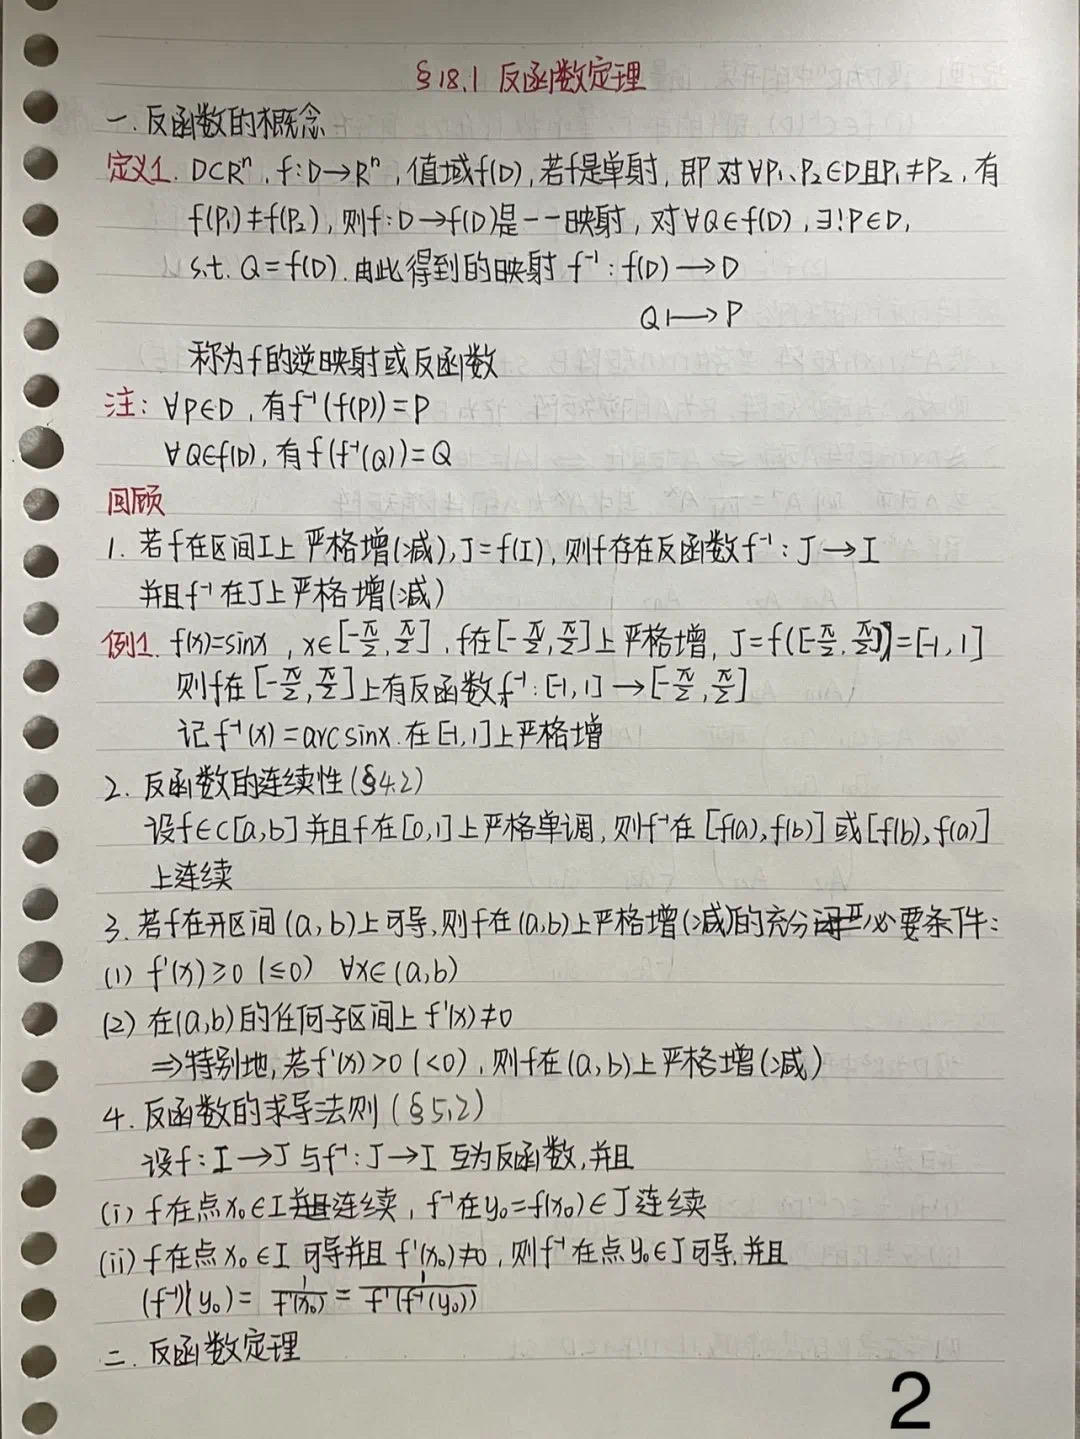 §18.1 反函数定理
一.反函数的概念
定义1. D⊂Rⁿ, f:D→Rⁿ, 值域f(D), 若f是单射, 即对∀P₁、P₂∈D且P₁≠P₂, 有
f(P₁)≠f(P₂), 则f:D→f(D)是一一映射, 对∀Q∈f(D), ∃!P∈D,
s.t. Q=f(D). 由此得到的映射 f⁻¹: f(D)→D
Q↦P
称为f的逆映射或反函数
注: ∀P∈D, 有f⁻¹(f(P))=P
∀Q∈f(D), 有f(f⁻¹(Q))=Q
回顾
1. 若f在区间I上严格增(减), J=f(I), 则f存在反函数f⁻¹: J→I
并且f⁻¹在J上严格增(减)
例1. f(x)=sinx, x∈[-π/2, π/2], f在[-π/2, π/2]上严格增, J=f([-π/2, π/2])=[-1,1]
则f在[-π/2, π/2]上有反函数f⁻¹: [-1,1]→[-π/2, π/2]
记f⁻¹(x)=arcsinx. 在[-1,1]上严格增
2. 反函数的连续性(§4.2)
设f∈C[a,b]并且f在[0,1]上严格单调, 则f⁻¹在[f(a), f(b)]或[f(b), f(a)]
上连续
3. 若f在开区间(a,b)上可导, 则f在(a,b)上严格增(减)的充分必要条件:
(1) f'(x)≥0 (≤0) ∀x∈(a,b)
(2) 在(a,b)的任何子区间上f'(x)≠0
⇒特别地, 若f'(x)>0 (<0), 则f在(a,b)上严格增(减)
4. 反函数的求导法则(§5.2)
设f: I→J与f⁻¹: J→I 互为反函数, 并且
(i) f在点x₀∈I连续, f⁻¹在y₀=f(x₀)∈J连续
(ii) f在点x₀∈I 可导并且f'(x₀)≠0, 则f⁻¹在点y₀∈J可导, 并且
(f⁻¹)'(y₀)= 1/f'(x₀) = 1/f'(f⁻¹(y₀))
二. 反函数定理
2